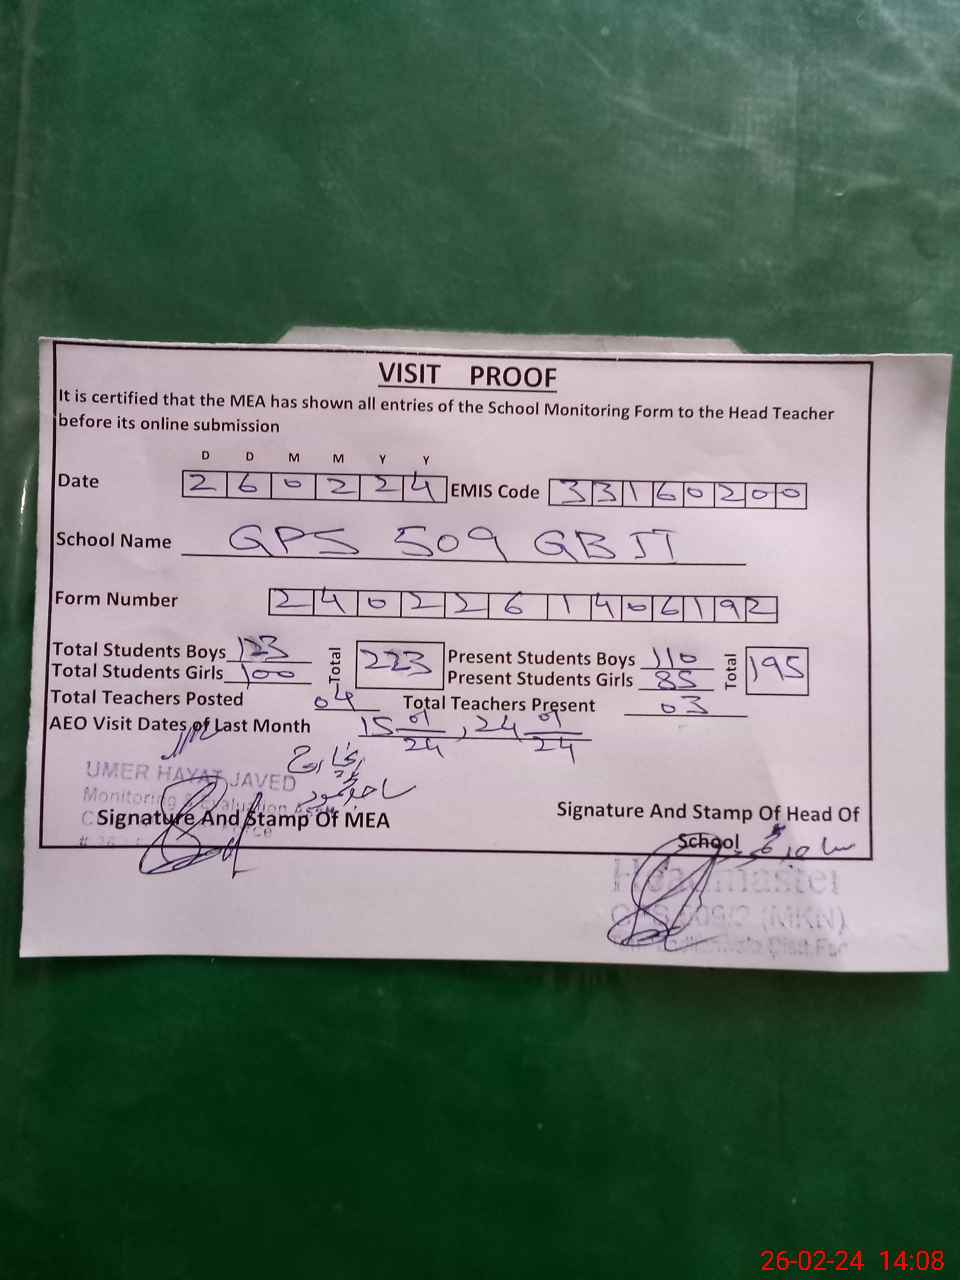 VISIT PROOF
It is certified that the MEA has shown all entries of the School Monitoring Form to the Head Teacher
before its online submission
D D M M Y Y
Date 260224 EMIS Code 33160200
School Name GPS 509 GB II
Form Number 2402261406192
Total Students Boys 123 Total 223 Present Students Boys 110 Total 195
Total Students Girls 100 Present Students Girls 85
Total Teachers Posted 04 Total Teachers Present 03
AEO Visit Dates of Last Month 15 01/24, 24 01/24
UMER HAYAT JAVED
Monitoring & Evaluation
Signature And Stamp Of MEA
Signature And Stamp Of Head Of
School
Headmaster
(MKN)
26-02-24 14:08